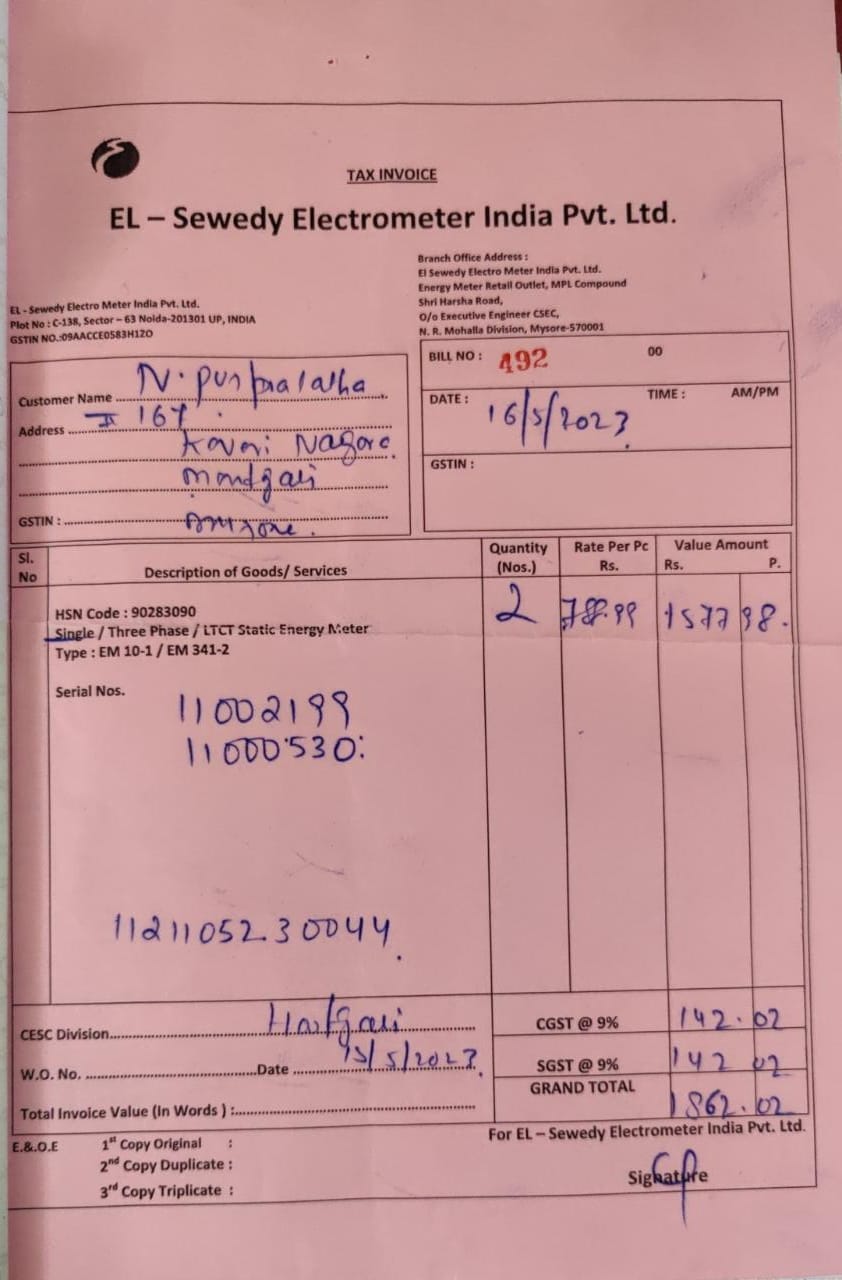 TAX INVOICE
EL – Sewedy Electrometer India Pvt. Ltd.
EL - Sewedy Electro Meter India Pvt. Ltd.
Plot No : C-138, Sector – 63 Noida-201301 UP, INDIA
GSTIN NO.:09AACCE0583H1ZO
Branch Office Address :
El Sewedy Electro Meter India Pvt. Ltd.
Energy Meter Retail Outlet, MPL Compound
Shri Harsha Road,
O/o Executive Engineer CSEC,
N. R. Mohalla Division, Mysore-570001
Customer Name N.
Address 167
Nagara
GSTIN :
BILL NO : 492 00
DATE : 16/5/2023 TIME : AM/PM
GSTIN :
Sl. No Description of Goods/ Services Quantity (Nos.) Rate Per Pc Rs. Value Amount Rs. P.
HSN Code : 90283090 2 788.99 1577 98.
Single / Three Phase / LTCT Static Energy Meter
Type : EM 10-1 / EM 341-2
Serial Nos.
11002199
11000530:
1121105230044
CESC Division
W.O. No. Date 15/5/2023
Total Invoice Value (In Words ) :
CGST @ 9% 142.02
SGST @ 9% 142 02
GRAND TOTAL 1862.02
E.&.O.E 1st Copy Original :
2nd Copy Duplicate :
3rd Copy Triplicate :
For EL – Sewedy Electrometer India Pvt. Ltd.
Signature